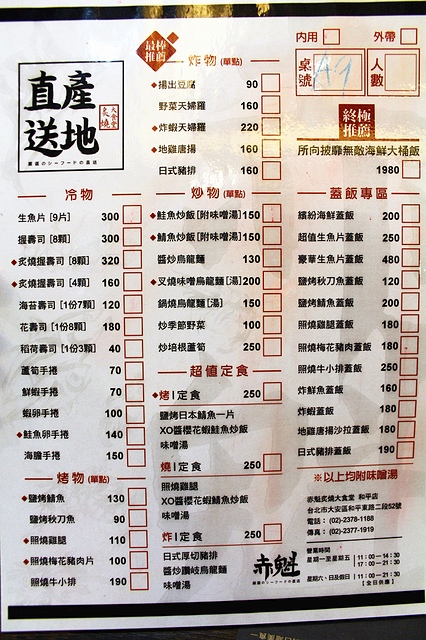 直產
送地
炙燒
大食堂
嚴選のシーフードの直送
冷物
生魚片 [9片] 300
握壽司 [8顆] 300
◆炙燒握壽司 [8顆] 320
◆炙燒握壽司 [4顆] 160
海苔壽司 [1份7顆] 120
花壽司 [1份8顆] 180
稻荷壽司 [1份3顆] 40
蘆筍手捲 70
鮮蝦手捲 70
蝦卵手捲 100
◆鮭魚卵手捲 140
海膽手捲 150
烤物 (單點)
◆鹽烤鯖魚 130
鹽烤秋刀魚 90
◆照燒雞腿 110
◆照燒梅花豬肉片 100
照燒牛小排 190
最棒推薦
炸物 (單點)
◆揚出豆腐 90
野菜天婦羅 160
◆炸蝦天婦羅 220
◆地雞唐揚 160
日式炸豬排 160
炒物 (單點)
◆鮭魚炒飯[附味噌湯] 150
◆鯖魚炒飯[附味噌湯] 150
醬炒烏龍麵 130
◆叉燒味噌烏龍麵[湯] 200
鍋燒烏龍麵[湯] 150
炒季節野菜 100
炒培根蘆筍 250
超值定食
◆烤|定食 250
鹽烤日本鯖魚一片
XO醬櫻花蝦鮭魚炒飯
味噌湯
燒|定食 250
照燒雞腿
XO醬櫻花蝦鯖魚炒飯
味噌湯
炸|定食 250
日式厚切豬排
醬炒讚岐烏龍麵
味噌湯
內用
外帶
桌號 A9
人數
終極推薦
所向披靡無敵海鮮大桶飯
1980
蓋飯專區
繽紛海鮮蓋飯 200
超值生魚片蓋飯 250
豪華生魚片蓋飯 480
鹽烤秋刀魚蓋飯 120
鹽烤鯖魚蓋飯 200
照燒雞腿蓋飯 180
照燒梅花豬肉蓋飯 180
照燒牛小排蓋飯 250
炸鮮魚蓋飯 160
炸蝦蓋飯 180
地雞唐揚沙拉蓋飯 180
日式豬排蓋飯 190
※以上均附味噌湯
赤魁炙燒大食堂 和平店
台北市大安區和平東路二段52號
電話： (02)-2378-1188
傳真： (02)-2377-1919
赤魁
嚴選のシーフードの直送
營業時間
星期一至星期五 | 11：00－14：30
17：00－21：30
星期六、日及假日 | 11：00－21：30
【全日供應】